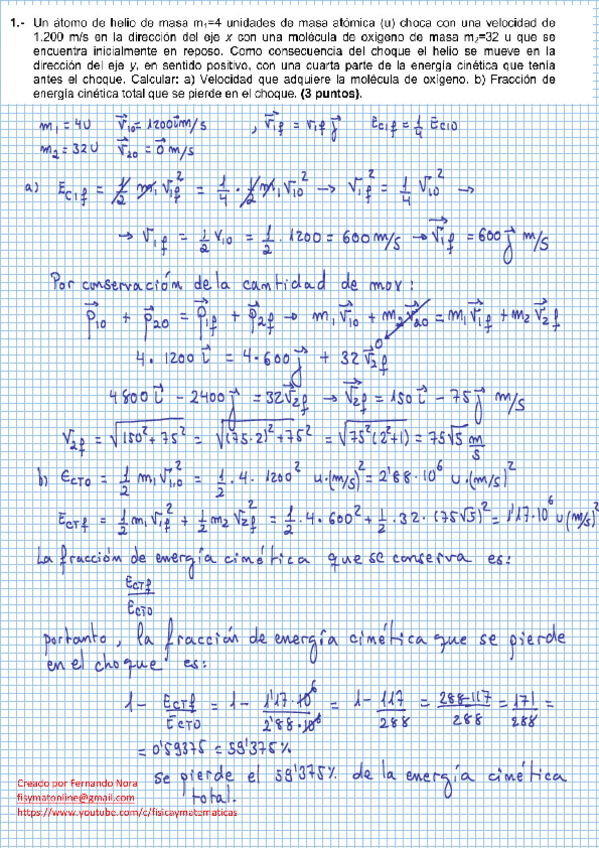 1.- Un átomo de helio de masa m₁=4 unidades de masa atómica (u) choca con una velocidad de
1.200 m/s en la dirección del eje x con una molécula de oxígeno de masa m₂=32 u que se
encuentra inicialmente en reposo. Como consecuencia del choque el helio se mueve en la
dirección del eje y, en sentido positivo, con una cuarta parte de la energía cinética que tenía
antes el choque. Calcular: a) Velocidad que adquiere la molécula de oxígeno. b) Fracción de
energía cinética total que se pierde en el choque. (3 puntos).
m₁ = 4u v⃗₁₀ = 1200 i⃗ m/s , v⃗₁f = v₁f j⃗ Ec₁f = 1/4 Ec₁₀
m₂ = 32u v⃗₂₀ = 0⃗ m/s
a) Ec₁f = 1/2 m₁ v₁f² = 1/4 · 1/2 m₁ v₁₀² → v₁f² = 1/4 v₁₀² →
→ v₁f = 1/2 v₁₀ = 1/2 · 1200 = 600 m/s → v⃗₁f = 600 j⃗ m/s
Por conservación de la cantidad de mov:
p⃗₁₀ + p⃗₂₀ = p⃗₁f + p⃗₂f → m₁v⃗₁₀ + m₂v⃗₂₀ = m₁v⃗₁f + m₂v⃗₂f
0
4 · 1200 i⃗ = 4 · 600 j⃗ + 32 v⃗₂f
4800 i⃗ - 2400 j⃗ = 32 v⃗₂f → v⃗₂f = 150 i⃗ - 75 j⃗ m/s
v₂f = √(150² + 75²) = √((75·2)² + 75²) = √(75²(2²+1)) = 75√5 m/s
b) EcT0 = 1/2 m₁ v₁,₀² = 1/2 · 4 · 1200² u·(m/s)² = 2'88 · 10⁶ u·(m/s)²
EcTf = 1/2 m₁ v₁f² + 1/2 m₂ v₂f² = 1/2 · 4 · 600² + 1/2 · 32 · (75√5)² = 1'17·10⁶ u(m/s)²
La fracción de energía cinética que se conserva es:
EcTf/EcT0
portanto, la fracción de energía cinética que se pierde
en el choque es:
1 - EcTf/EcT0 = 1 - 1'17·10⁶/2'88·10⁶ = 1 - 117/288 = 288-117/288 = 171/288 =
= 0'59375 = 59'375%
se pierde el 59'375% de la energía cinética
total.
Creado por Fernando Nora
fisymatonline@gmail.com
https://www.youtube.com/c/fisicaymatematicas